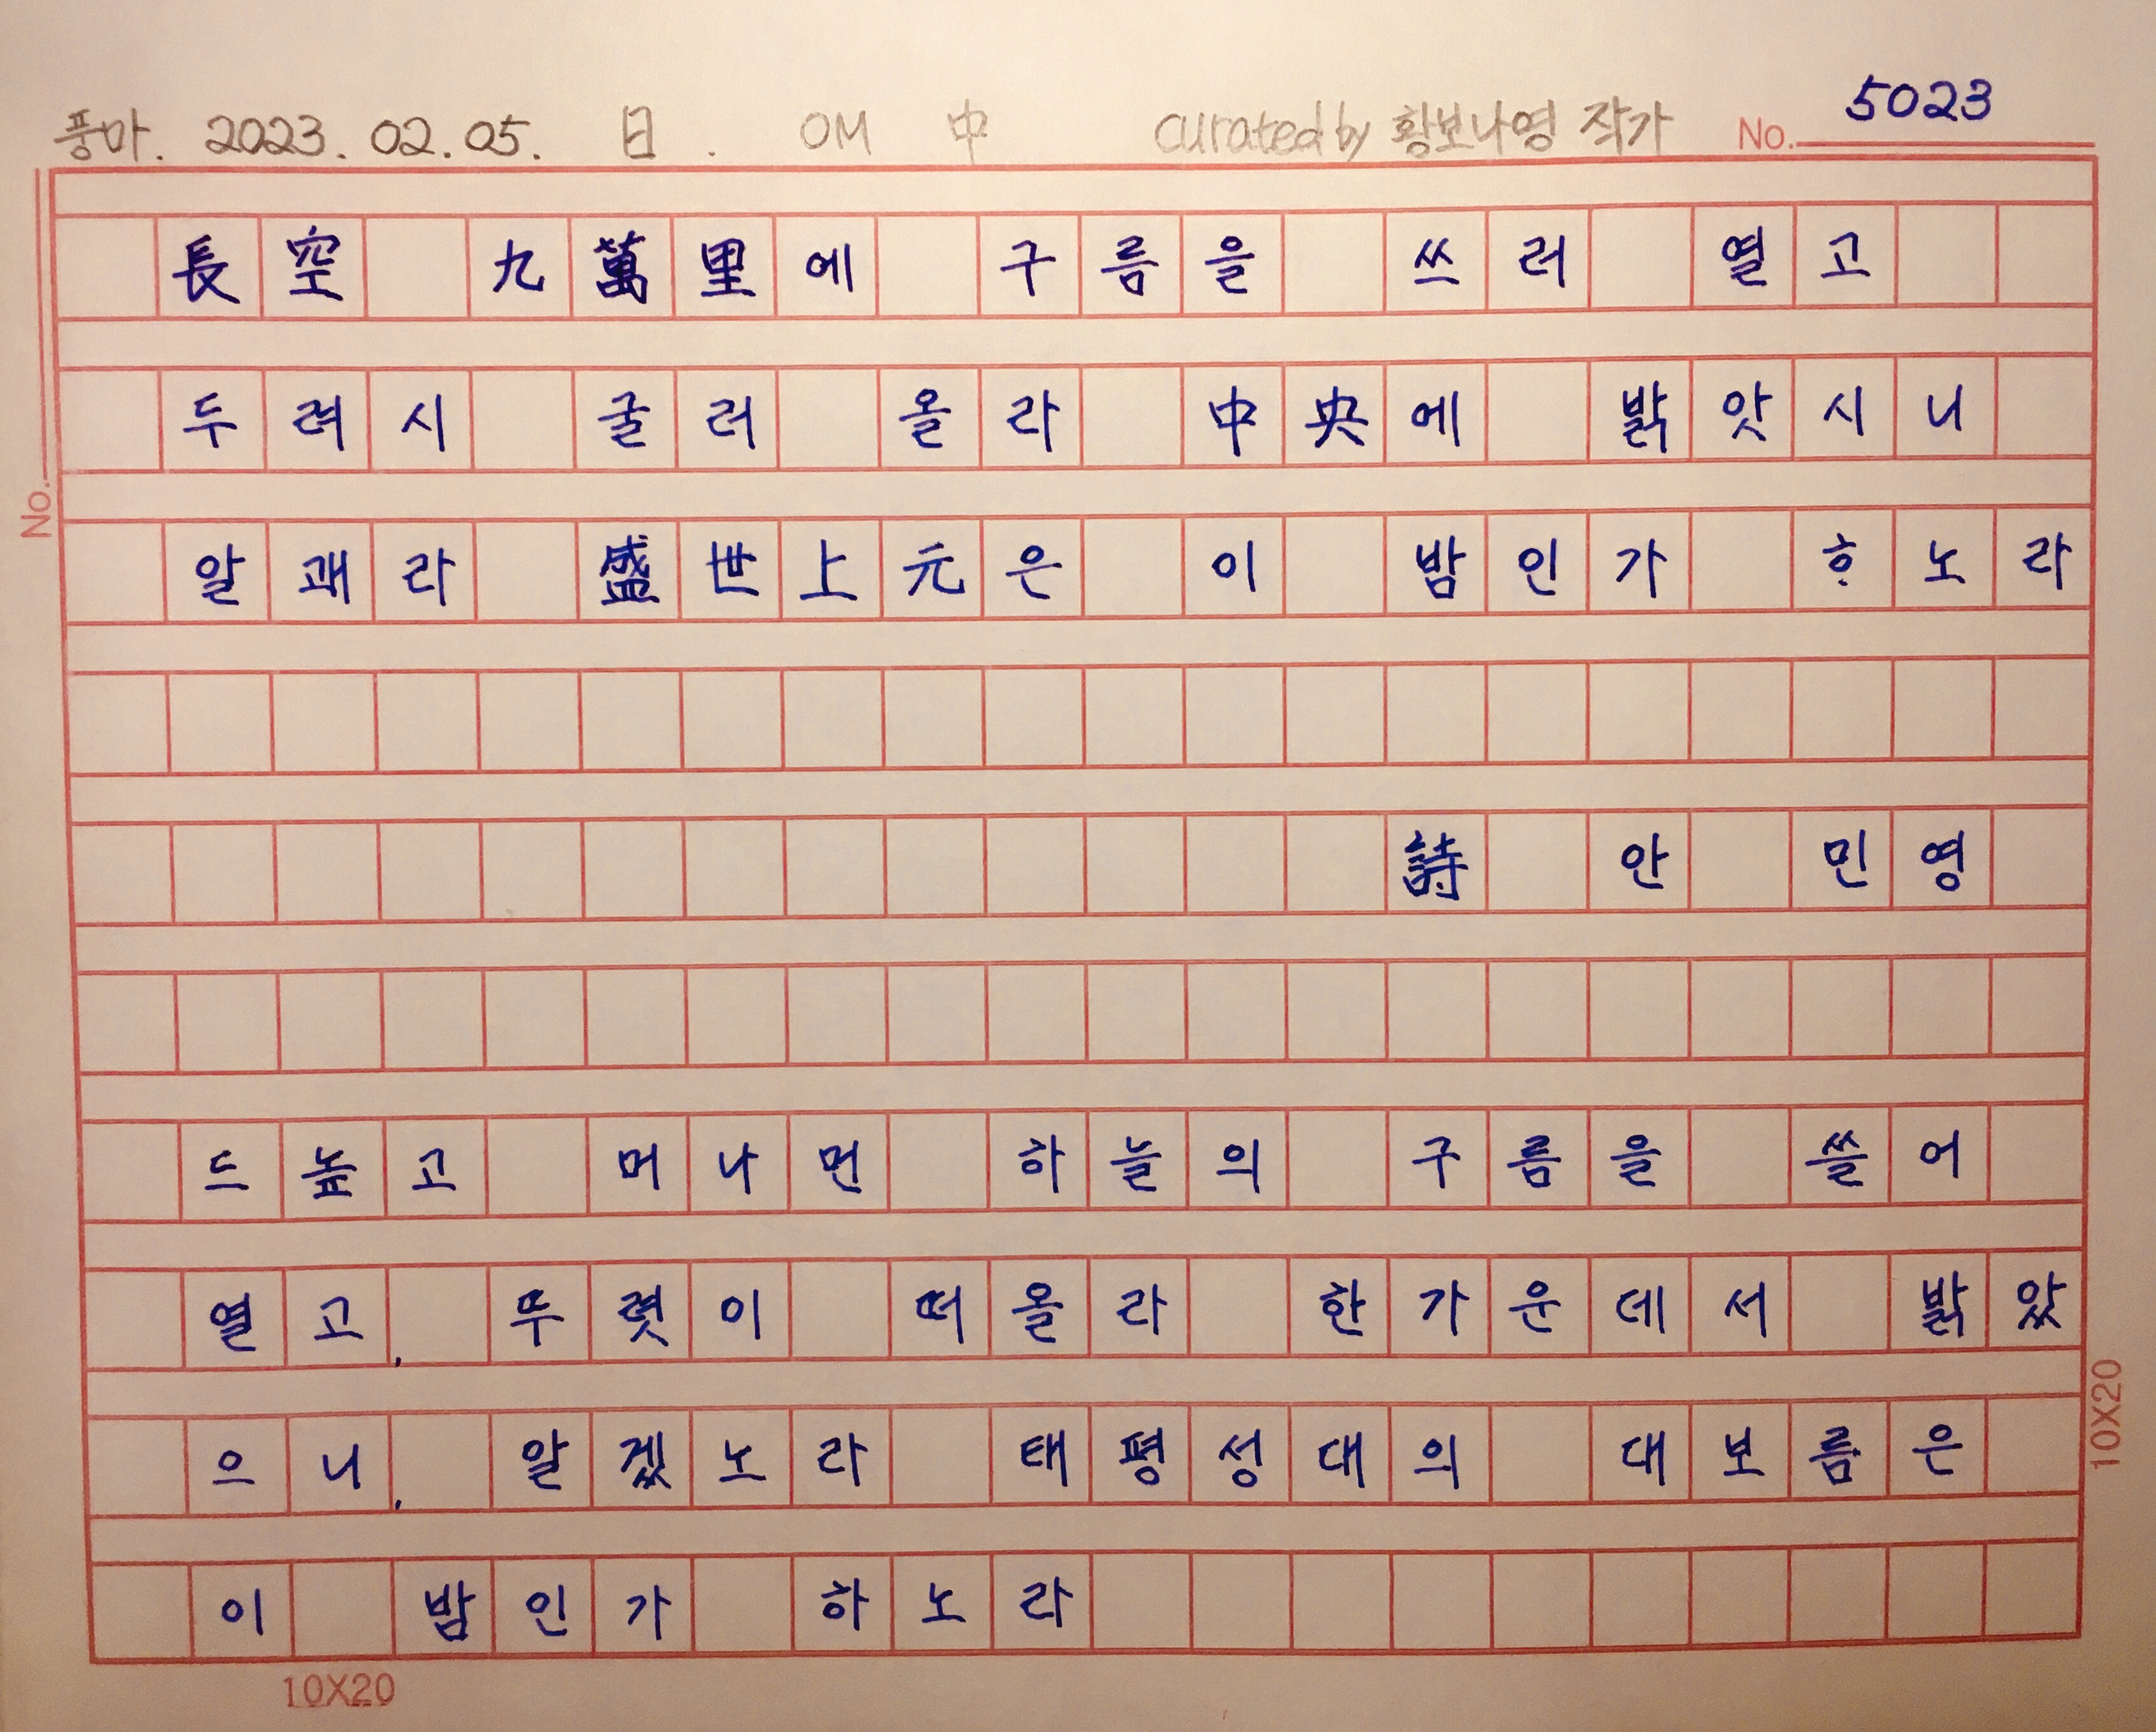 풍마. 2023. 02. 05. 日. OM 中 curated by 황보나영 작가 No. 5023
長空 九萬里에 구름을 쓰러 열고
두려시 굴러 올라 中央에 밝앗시니
No.
알괘라 盛世上元은 이 밤인가 ᄒᆞ노라
詩 안 민영
드높고 머나먼 하늘의 구름을 쓸어
열고, 뚜렷이 떠올라 한가운데서 밝았
으니, 알겠노라 태평성대의 대보름은
10X20
이 밤인가 하노라
10X20